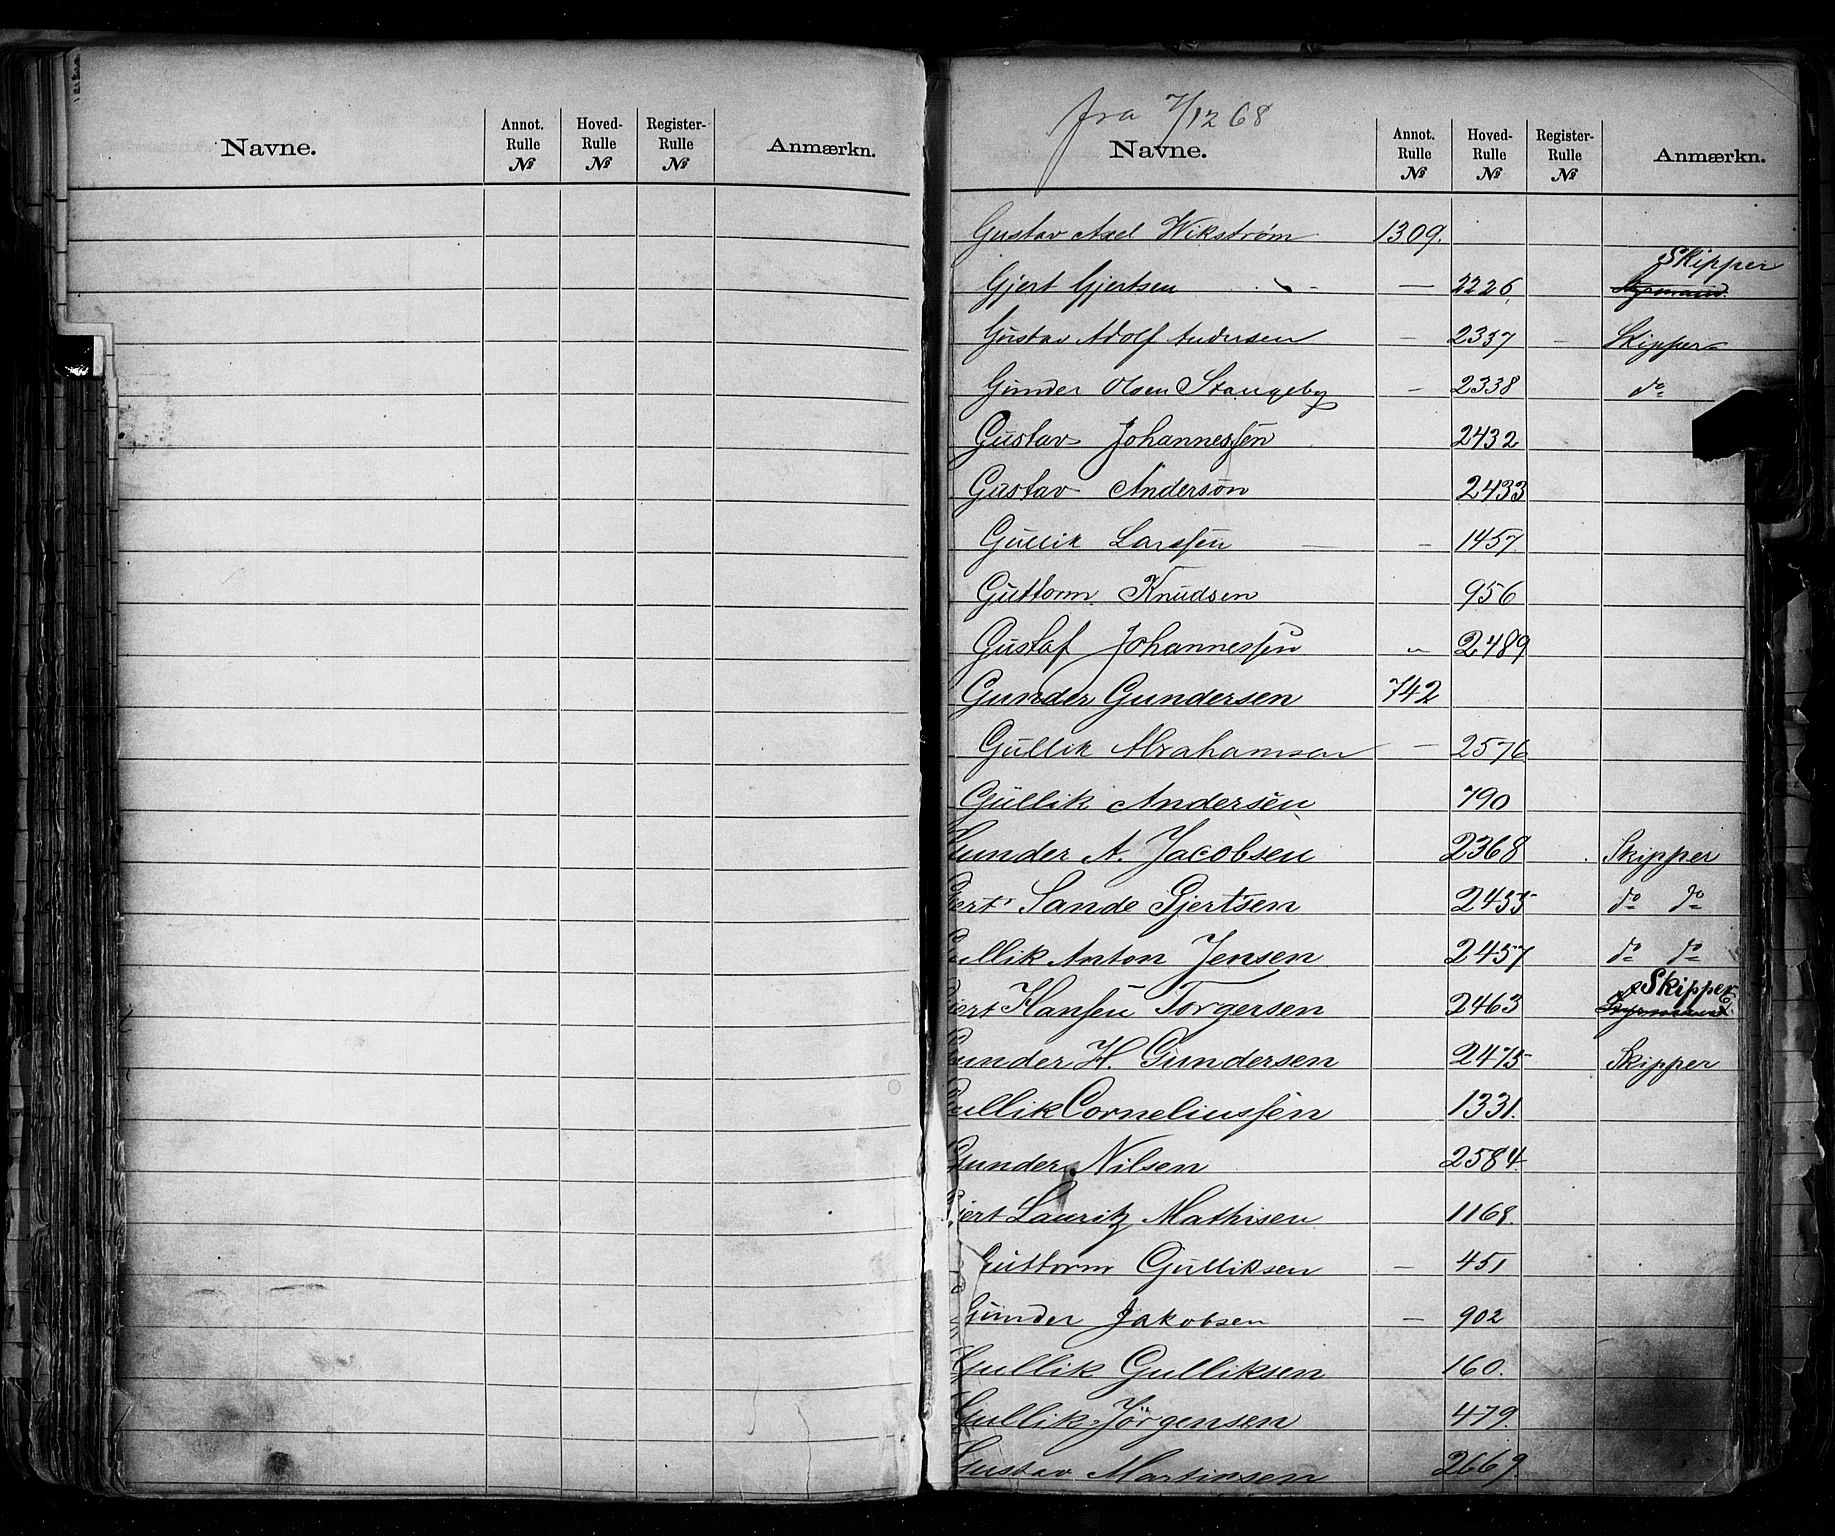 Navne. Annot. Rulle № Hoved-Rulle № Register-Rulle № Anmærkn.
fra 7/12 68
Navne. Annot. Rulle № Hoved-Rulle № Register-Rulle № Anmærkn.
Gustav Axel Wikstrøm 1309.
Skipper
Gjert Gjertsen — 2226 Styrmand.
Gustav Adolf Andersen — 2337 — Skipper
Gunder Olsen Stangeby — 2338 do
Gustav Johannessen 2432
Gustav Anderson 2433
Gullik Larssen — 1457
Guttorm Knudsen 956
Gustaf Johannessen " 2489
Gunder Gundersen 742
Gullik Abrahamsen — 2576
Gullik Andersen 790
Gunder A. Jacobsen 2368 Skipper
Gjert Sande Gjertsen 2455 do do
Gullik Anton Jensen 2457 do do
Skipper
Gjert Hansen Torgersen 2463 Styrmand
Gunder H. Gundersen 2475 Skipper
Gullik Corneliussen 1331.
Gunder Nilsen 2584
Gjert Lauritz Mathisen 1168.
Guttorm Gulliksen — 451
Gunder Jakobsen — 902
Gullik Gulliksen 160.
Gullik Jörgensen 479.
Gustav Martinsen 2669.